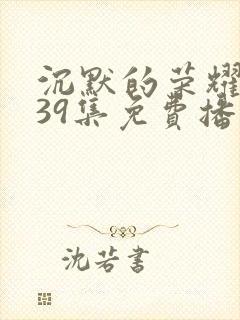 沉默的荣耀
39集免費播
沈若書